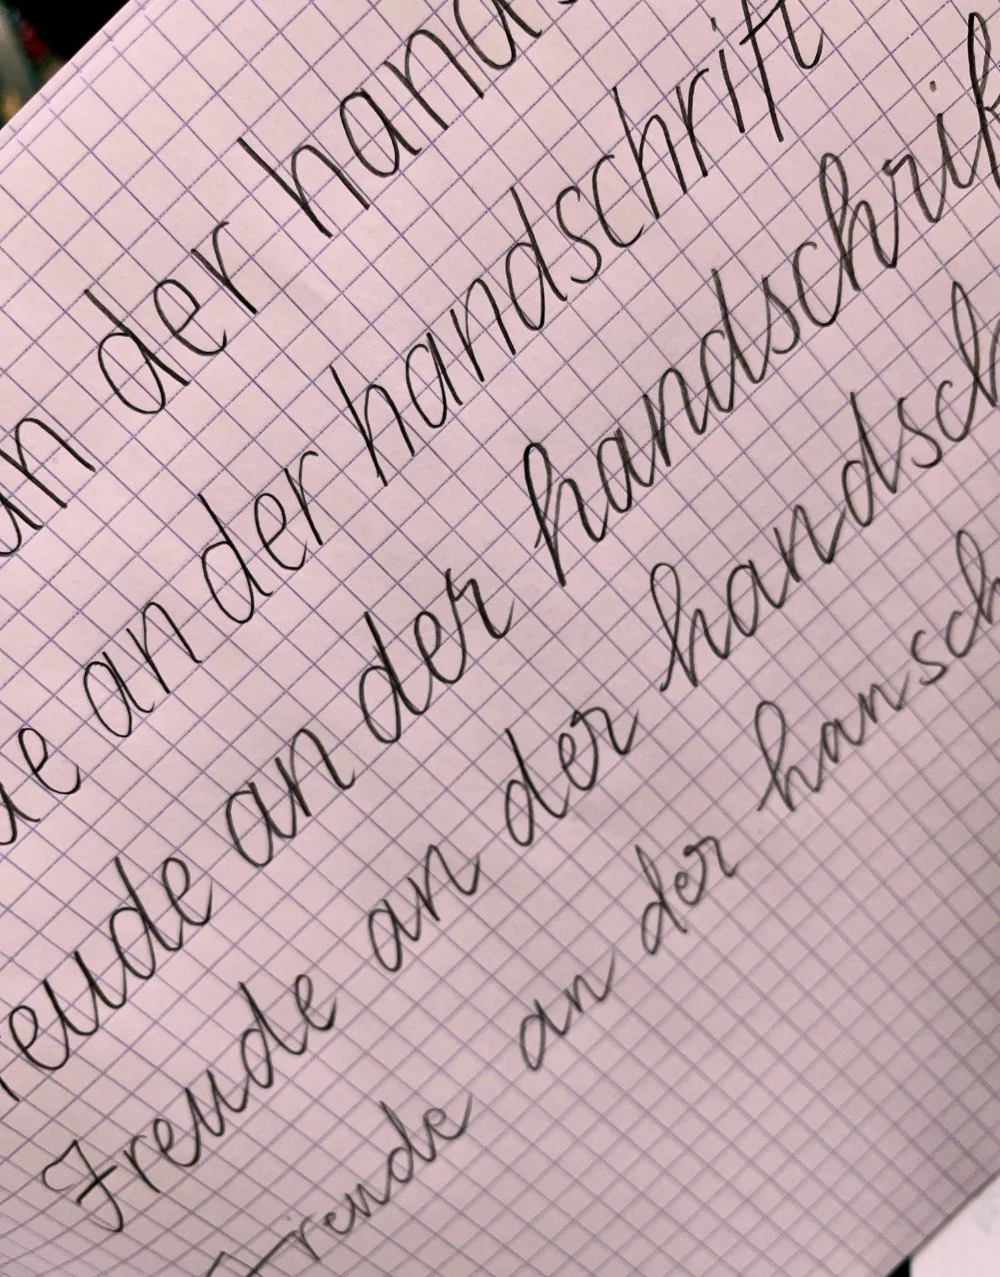 an der hands
de an der handschrift
reude an der handschrif
Freude an der handsch
Freude an der hansch